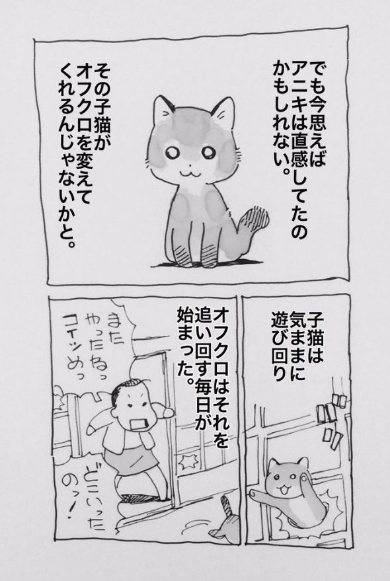 でも今思えば
アニキは直感してたの
かもしれない。
その子猫が
オフクロを変えて
くれるんじゃないかと。
子猫は
気ままに
遊び回り
オフクロはそれを
追い回す毎日が
始まった。
また
やったねっ
コイツめっ
どこいった
のっ!